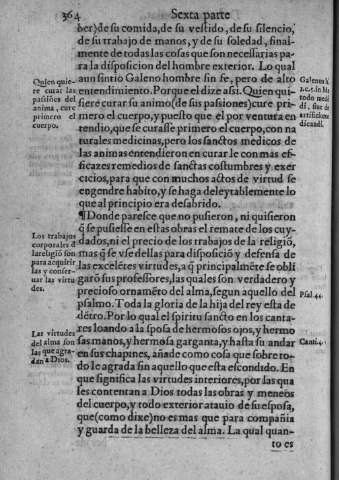 364
Sexta parte
ber) de su comida, de su vestido, de su silencio,
de su trabajo de manos, y de su soledad, final-
mente de todas las cosas que son necessarias pa-
ra la disposicion del hombre exterior. Lo qual
aun sintio Galeno hombre sin fe, pero de alto
entendimiento. Porque el dize assi. Quien qui-
siere curar su animo (de sus pasiones) cure pri-
mero el cuerpo, y puesto que el por ventura en
tendio, que se curasse primero el cuerpo, con na
turales medicinas, pero los sanctos medicos de
las animas entendieron en curarle con mas ef-
ficazes remedios de sanctas costumbres y exer
cicios, para que con muchos actos de virtud se
engendre habito, y se haga deleytablemente lo
que al principio era desabrido.
¶ Donde paresce que no pusieron, ni quisieron
q̃ se pusiesse en estas obras el remate de los cuy-
dados, ni el precio de los trabajos de la religiõ,
mas q̃ se vse dellas para disposiciõ y defensa de
las excelẽtes virtudes, a q̃ principalmẽte se obli
garõ sus professores, las quales son verdadero y
precioso ornamẽto del alma, segun aquello del
psalmo. Toda la gloria de la hija del rey esta de
dẽtro. Por lo qual el spiritu sancto en los canta-
res loando a la sposa de hermosos ojos, y hermo
sas manos, y hermosa garganta, y hasta su andar
en sus chapines, añade como cosa que sobre to-
do le agrada sin aquello que esta escondido. En
que significa las virtudes interiores, por las qua
les contentan a Dios todas las obras y meneos
del cuerpo, y todo exterior atauio de su esposa,
que (como dixe) no es mas que para compañia
y guarda de la belleza del alma. La qual quan-
to es
Quien quie-
re curar las
pasiões del
anima, cure
primero el
cuerpo.
Los trabajos
corporales d̃
la religiõ son
para acquirir
las y conser-
uar las virtu
des.
Las virtudes
del alma son
las que agra-
dan a Dios.
Psal.44.
Canti.4.